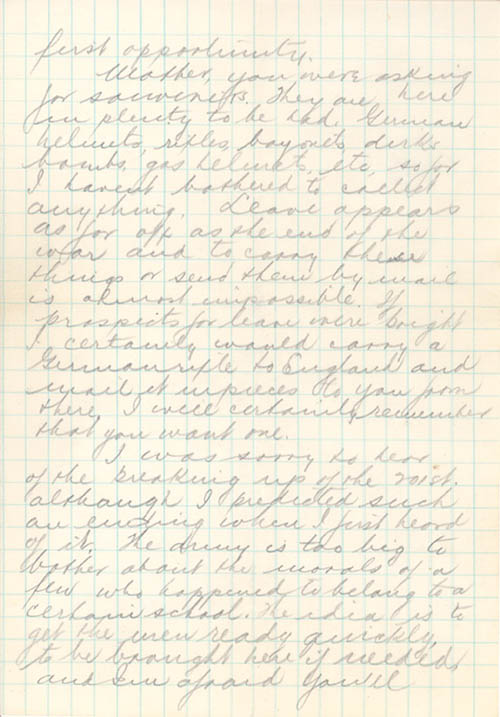 first opportunity.
Mother, you were asking
for souvenirs. They are here
in plenty to be had. German
helmets, rifles, bayonets, dirks
bombs, gas helmets, etc, so far
I havent bothered to collect
anything. Leave appears
as far off as the end of the
war and to carry these
things or send them by mail
is almost impossible. If
prospects for leave were bright
I certainly would carry a
German rifle to England and
mail it in pieces to you from
there. I will certainly remember
that you want one.
I was sorry to hear
of the breaking up of the 201st.
although I predicted such
an ending when I first heard
of it. The army is too big to
bother about the morals of a
few who happened to belong to a
certain school. The idia is to
get the men ready quickly,
to be brought here if needed,
and I'm afraid you'll